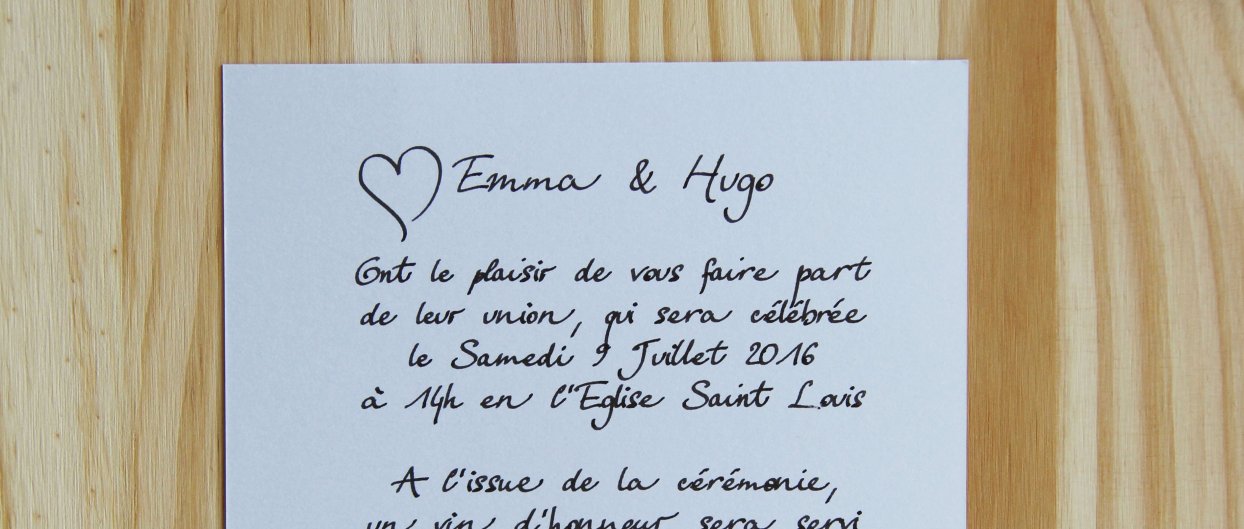 Emma & Hugo
Ont le plaisir de vous faire part
de leur union, qui sera célébrée
le Samedi 9 Juillet 2016
à 14h en l'Eglise Saint Louis
A l'issue de la cérémonie,
un vin d'honneur sera servi